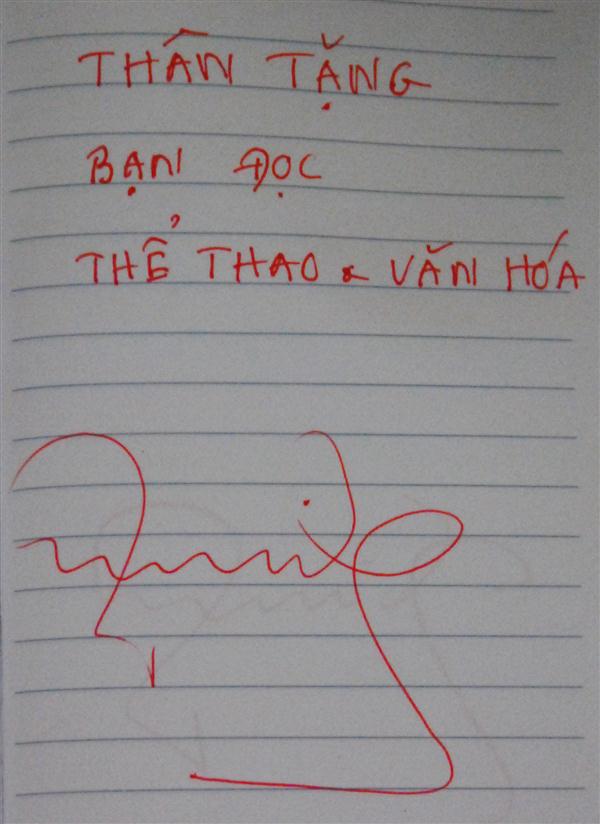 THÂN TẶNG
BẠN ĐỌC
THỂ THAO & VĂN HÓA